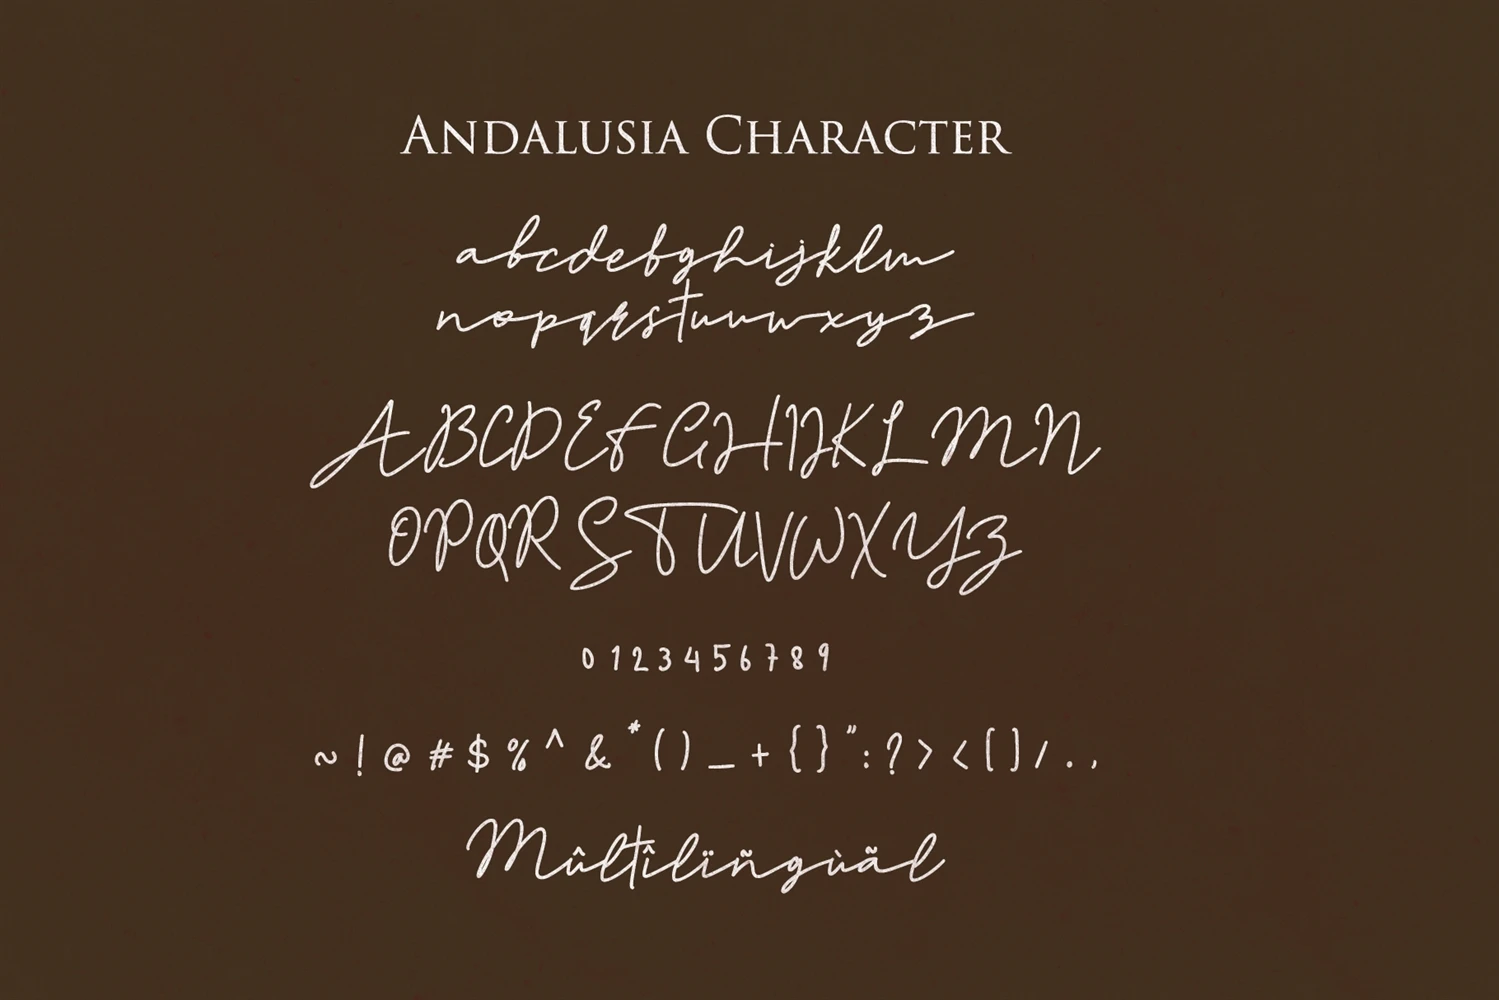 ANDALUSIA CHARACTER
abcdefghijklm
nopqrstuvwxyz
ABCDEFGHIJKLMN
OPQRSTUVWXYZ
0 1 2 3 4 5 6 7 8 9
~ ! @ # $ % ^ & * ( ) _ + { } " : ? > < [ ] / . ,
Mûltîlïñgùãl